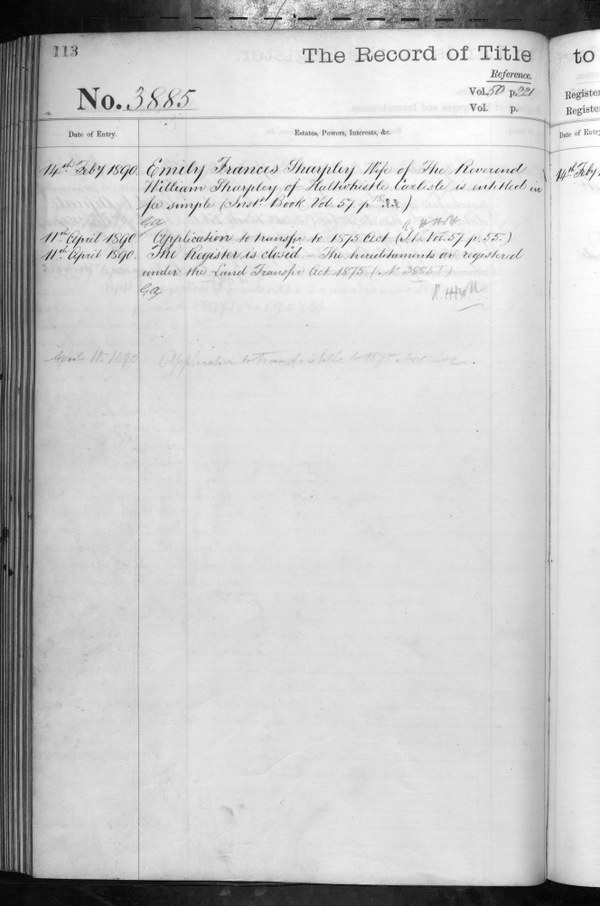 113
The Record of Title
to
Reference.
No. 3885
Vol. 50 p. 221
Vol. p.
Register
Register
Date of Entry.
Estates, Powers, Interests, &c.
Date of Entry
14th Feby 1890. Emily Frances Sharpley Wife of The Reverend
William Sharpley of Haltwhistle Carlisle is entitled in
fee simple (Inst. Book Vol. 57. p.
14th Feby
11th April 1890 Application to transfer to 1875 Act ( Vol. 57. p. 55.)
11th April 1890. The Register is closed - The hereditaments are registered
under the Land Transfer Act 1875 (No 3885)
April 11. 1890 Application to transfer title to 1875 Act